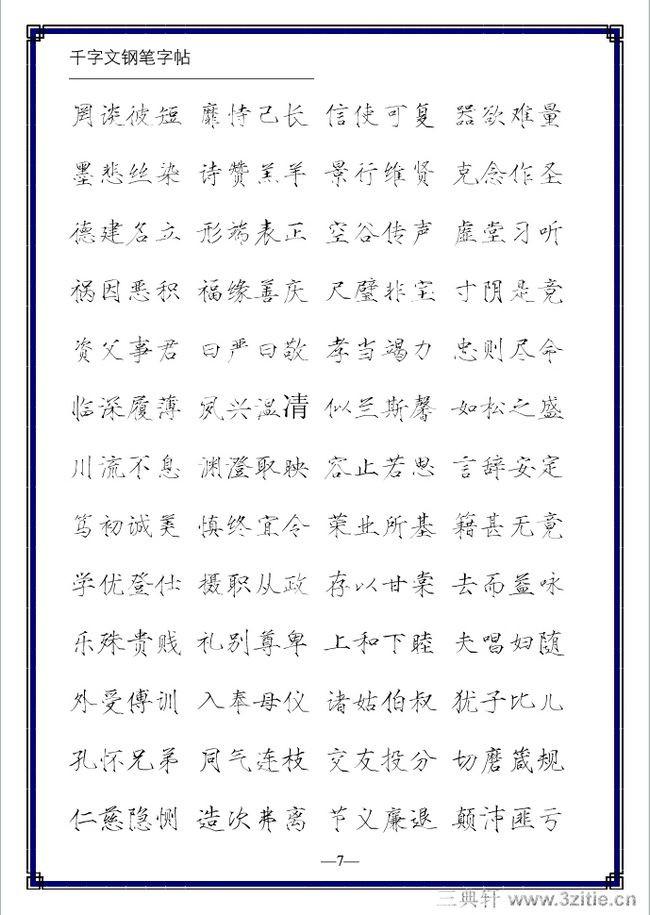 千字文钢笔字帖
罔谈彼短 靡恃己长 信使可复 器欲难量
墨悲丝染 诗赞羔羊 景行维贤 克念作圣
德建名立 形端表正 空谷传声 虚堂习听
祸因恶积 福缘善庆 尺璧非宝 寸阴是竞
资父事君 曰严曰敬 孝当竭力 忠则尽命
临深履薄 夙兴温凊 似兰斯馨 如松之盛
川流不息 渊澄取映 容止若思 言辞安定
笃初诚美 慎终宜令 荣业所基 籍甚无竟
学优登仕 摄职从政 存以甘棠 去而益咏
乐殊贵贱 礼别尊卑 上和下睦 夫唱妇随
外受傅训 入奉母仪 诸姑伯叔 犹子比儿
孔怀兄弟 同气连枝 交友投分 切磨箴规
仁慈隐恻 造次弗离 节义廉退 颠沛匪亏
—7—
三典轩 www.3zitie.cn